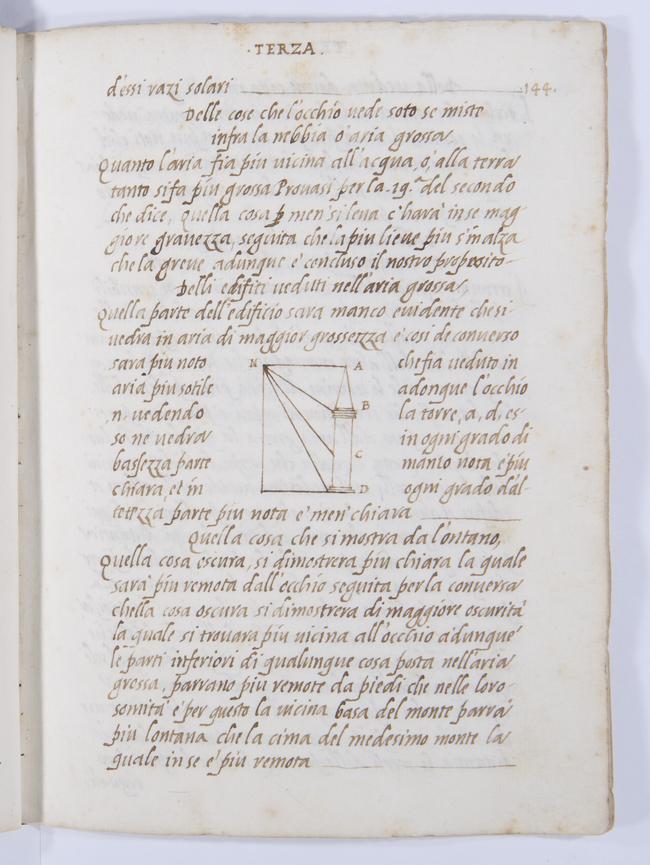 ·TERZA·
d'essi razi solari 144.
Delle cose che l'occhio vede soto se miste
infra la nebbia o' aria grossa
Quanto l'aria fia piu vicina all'acqua, o, alla terra
tanto si fa piu grossa Provasi per la .19.ª del secondo
che dice, quella cosa ꝑ men si leva c'hara in se mag
giore gravezza, seguita che la piu lieve piu s'inalza
che la greve adunque e' concluso il nostro proposito
Delli edifiti veduti nell'aria grossa
Quella parte dell'edificio sara manco evidente che si
vedra in aria di maggior grossezza e' cosi de converso
sara piu noto N A che fia veduto in
aria piu sotile adonque l'occhio
.n. vedendo B la torre, a, d, es-
so ne vedra in ogni grado di
bassezza parte C manto nota e' piu
chiara, et in D ogni grado d'al
tezza parte piu nota e' men' chiara
Quella cosa che si mostra da l'ontano,
Quella cosa oscura, si dimostrera piu chiara la quale
sara' piu remota dall'occhio seguita per la conversa
che'lla cosa oscura si dimostrera di maggiore oscurita'
la quale si trovara piu vicina all'occhio adunque
le parti inferiori di qualunque cosa posta nell'aria
grossa, parrano piu remote da piedi che nelle loro
somita' e' per questo la vicina basa del monte parra'
piu lontana che la cima del medesimo monte la
quale in se e' piu remota